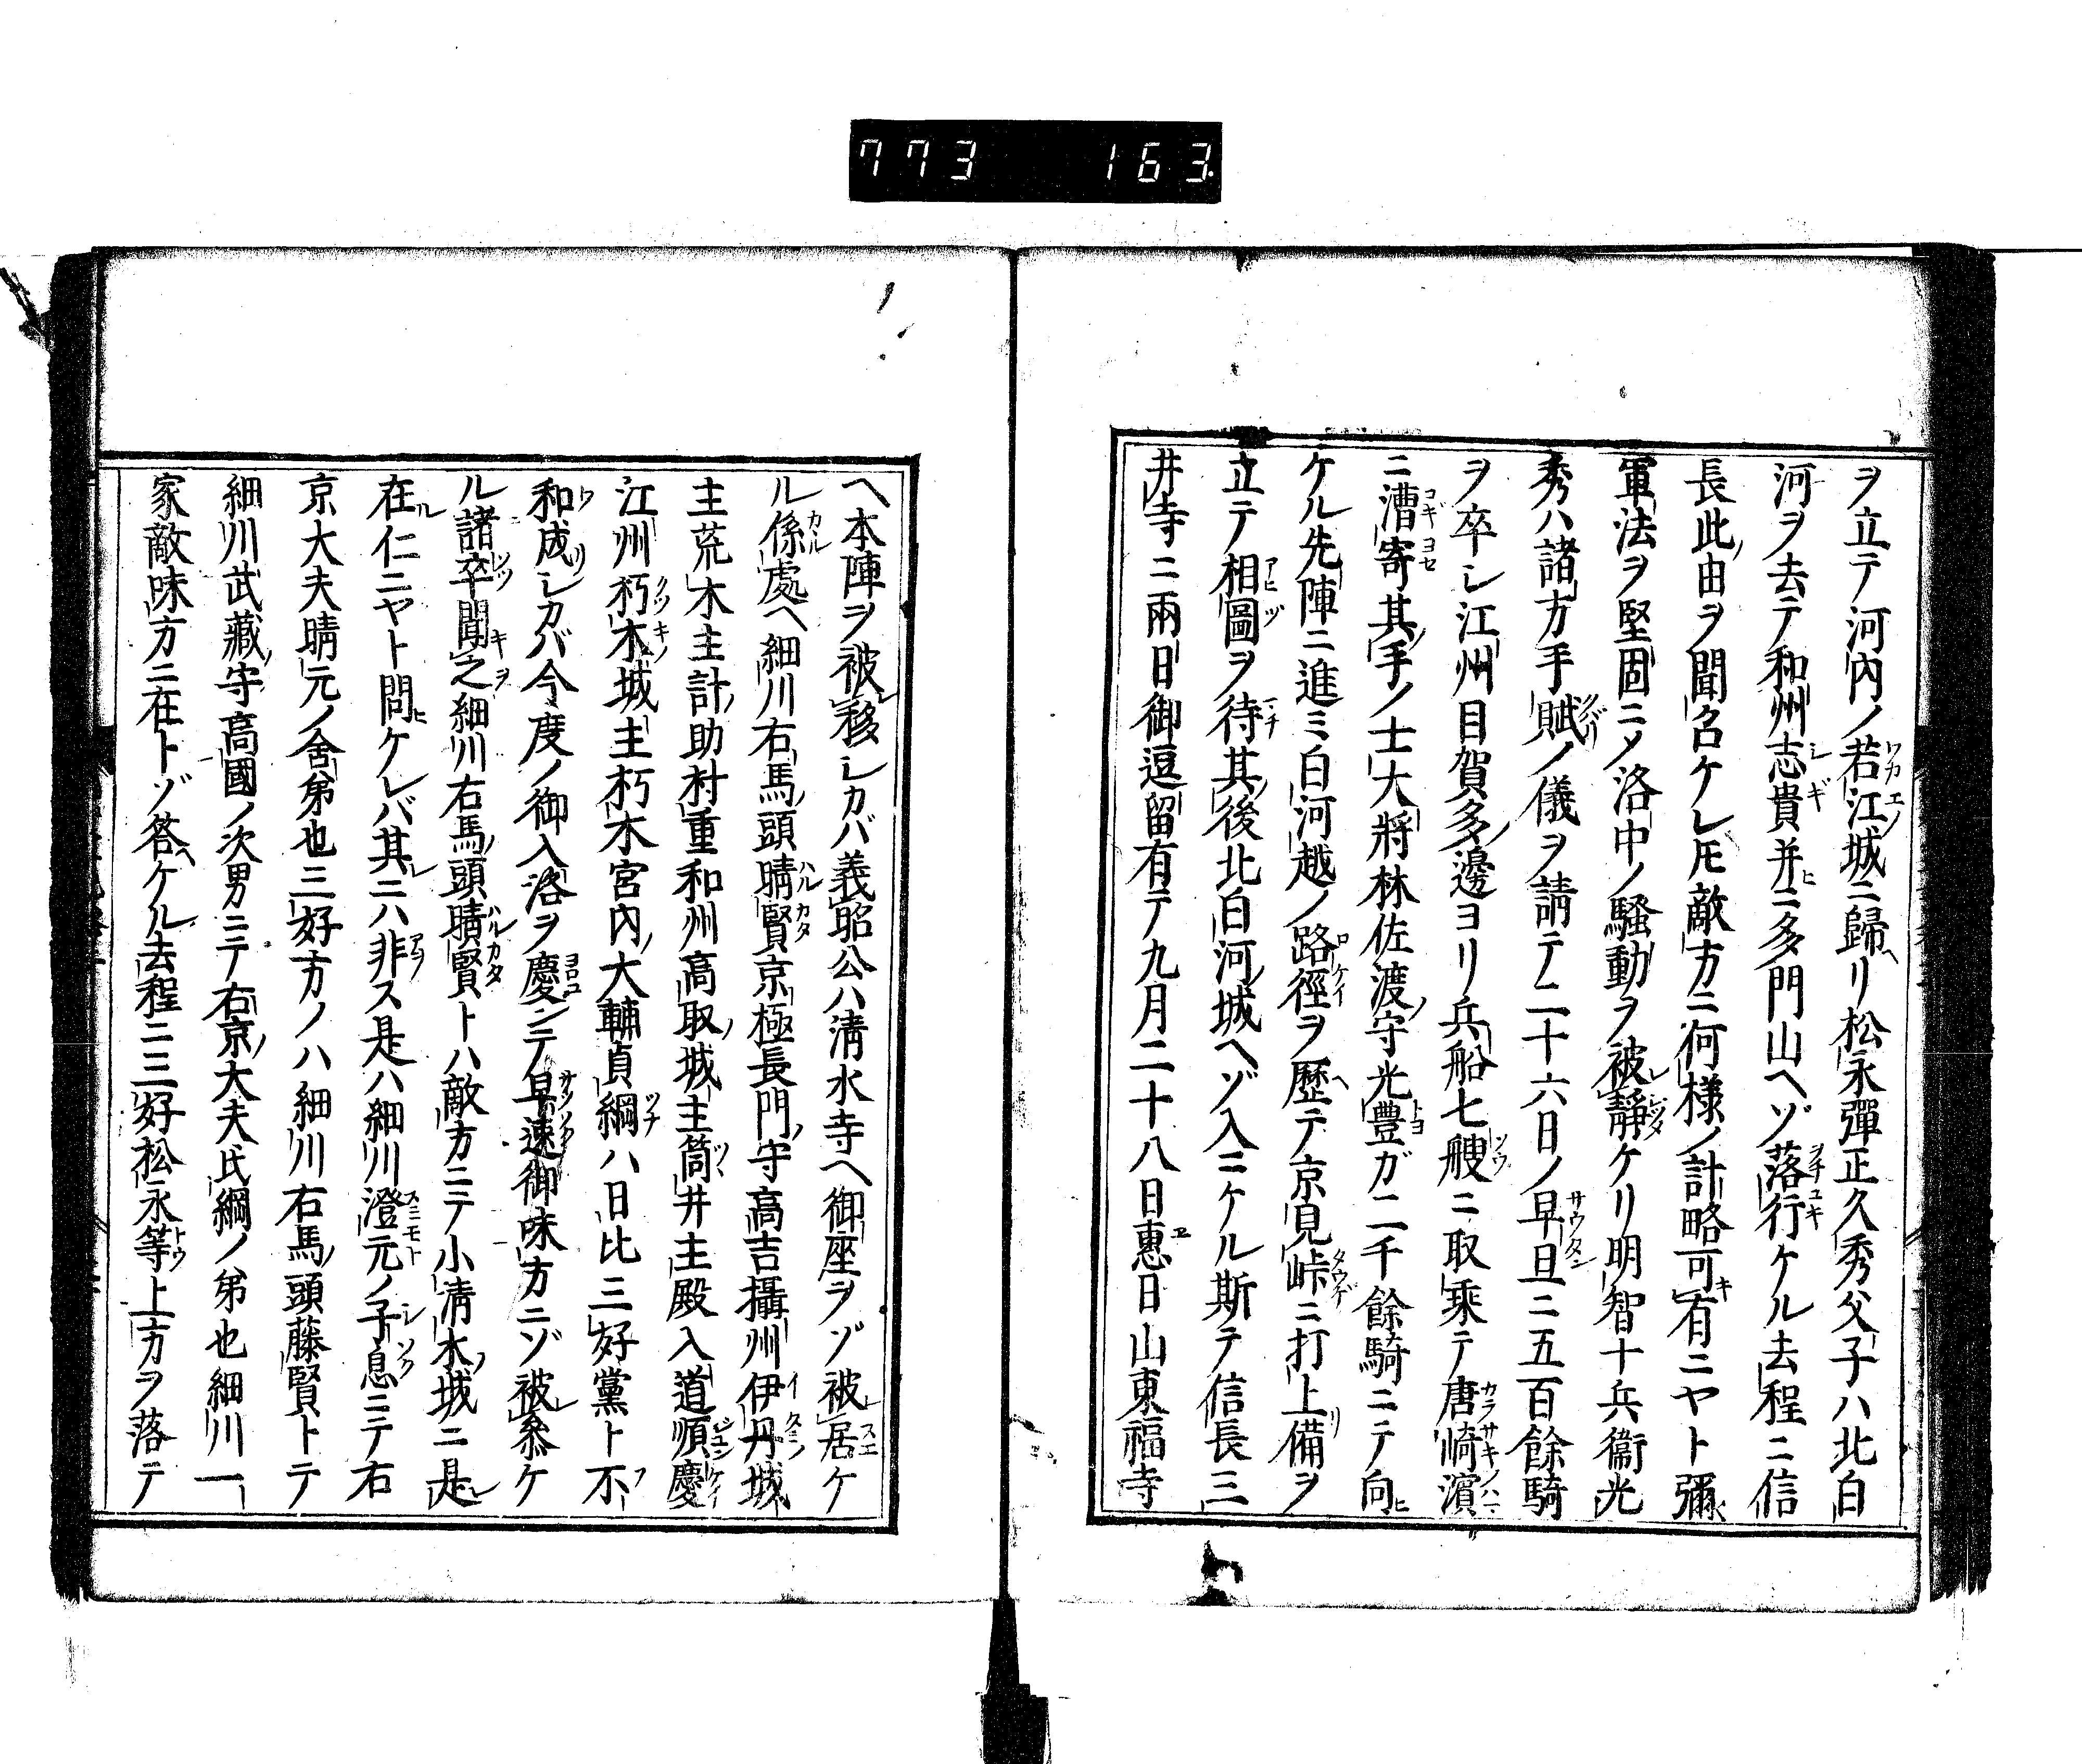 773 163
ヲ立テ河內ノ若江城ニ歸リ松永彈正久秀父子ハ北白
河ヲ去テ和州志貴并ニ多門山ヘゾ落行ケル去程ニ信
長此由ヲ聞召ケレ𪜈敵方ニ何樣ノ計略可有ニヤト彌
軍法ヲ堅固ニメ洛中ノ騷動ヲ被靜ケリ明智十兵衞光
秀ハ諸方手賦ノ儀ヲ請テ二十六日ノ早旦ニ五百餘騎
ヲ卒シ江州目賀多邊ヨリ兵船七艘ニ取乘テ唐崎濵
ニ漕寄其手ノ士大將林佐渡守光豊ガ二千餘騎ニテ向
ケル先陣ニ進ミ白河越ノ路徑ヲ歷テ京見峠ニ打上備ヲ
立テ相圖ヲ待其後北白河城ヘゾ入ニケル斯テ信長三
井寺ニ兩日御逗留有テ九月二十八日惠日山東福寺
ヘ本陣ヲ被移シカバ義昭公ハ淸水寺ヘ御座ヲゾ被居ケ
ル係處ヘ細川右馬頭晴賢京極長門守高吉攝州伊丹城
主荒木主計助村重和州高取城主筒井主殿入道順慶
江州朽木城主朽木宮內大輔貞綱ハ日比三好黨ト不
和成シカバ今度ノ御入洛ヲ慶ンテ早速御味方ニゾ被參ケ
ル諸卒聞之細川右馬頭晴賢トハ敵方ニテ小淸水城ニ是
在仁ニヤト問ケレバ其ニハ非ス是ハ細川澄元ノ子息ニテ右
京大夫晴元ノ舍弟也三好方ノハ細川右馬頭藤賢トテ
細川武藏守高國ノ次男ニテ右京大夫氏綱ノ弟也細川一
家敵味方ニ在トゾ答ケル去程ニ三好松永等上方ヲ落テ